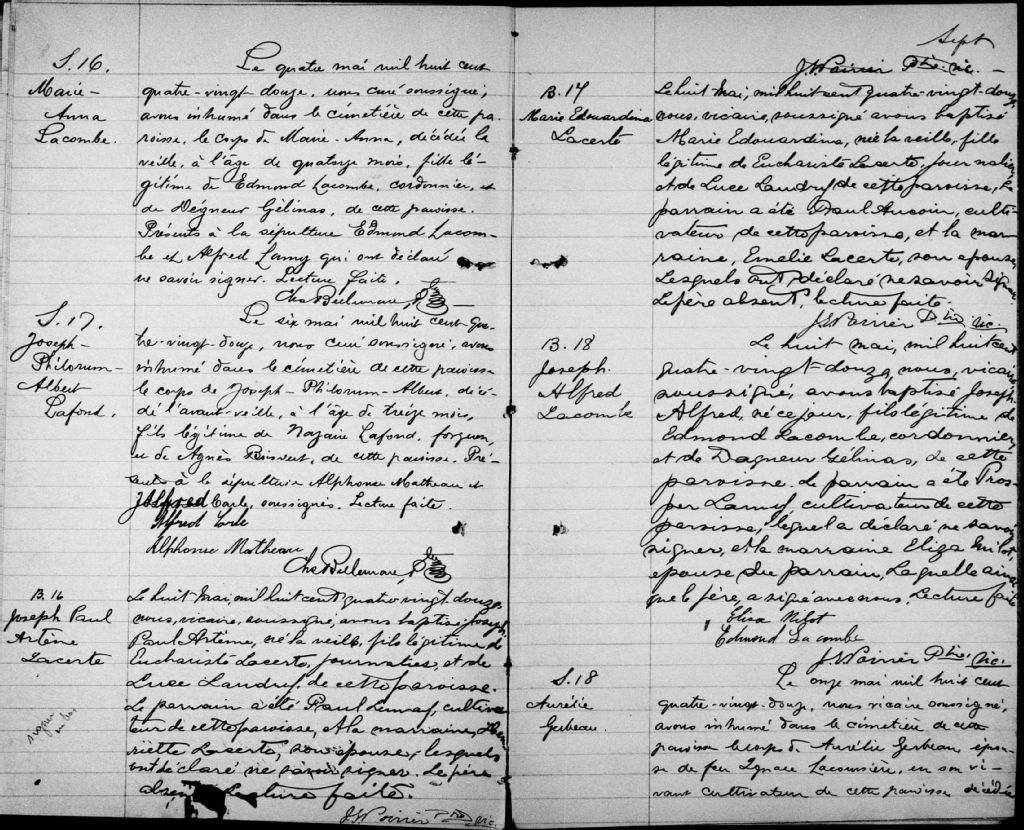 S. 16.
Marie-
Anna
Lacombe.
Le quatre mai mil huit cent
quatre-vingt douze, nous curé soussigné,
avons inhumé dans le cimétière de cette pa-
roisse, le corps de Marie-Anna, décédée la
veille, à l'âge de quatorze mois, fille lé-
gitime de Edmond Lacombe, cordonnier, et
de Dégneur Gélinas, de cette paroisse.
Présents à la sépulture Edmond Lacom-
be et Alfred Lamy qui ont déclaré
ne savoir signer. Lecture faite.
Chs Bellemare, Ptre
S. 17.
Joseph-
Philorum-
Albert
Lafond.
Le six mai mil huit cent qua-
tre-vingt-douze, nous curé soussigné, avons
inhumé dans le cimetière de cette paroisse
le corps de Joseph-Philorum-Albert, décé-
dé l'avant-veille, à l'âge de treize mois,
fils légitime de Nazaire Lafond, forgeron,
et de Agnès Boisvert, de cette paroisse. Pré-
sents à la sépulture Alphonse Matheau et
Alfred Carle, soussignés. Lecture faite.
Alfred Carle
Alphonse Matheau
Chs Bellemare, Ptre
B. 16
Joseph Paul
Artène
Lacerte
Le huit Mai, mil huit cent quatre vingt douze,
nous, vicaire, soussigné, avons baptisé Joseph
Paul Artène, né la veille, fils légitime de
Euchariste Lacerte, journalier, et de
Luce Landry, de cette paroisse.
Le parrain a été Paul Lamy, cultiva-
teur de cette paroisse, et la marraine, Hen-
riette Lacerte, son épouse, lesquels
ont déclaré ne savoir signer. Le père
absent, Lecture faite.
J. Poirier Ptre Vic.
Sept
J. Poirier Ptre. Vic.
B. 17
Marie Edouardina
Lacerte
Le huit Mai, mil huit cent quatre-vingt-douze
nous, vicaire, soussigné avons baptisé
Marie Edouardina, née la veille, fille
légitime de Euchariste Lacerte, journalier,
et de Luce Landry, de cette paroisse, le
parrain a été Paul Aucoin, culti-
vateur de cette paroisse, et la mar-
raine, Emelie Lacerte, son épouse,
Lesquels ont déclaré ne savoir signer
Le père absent, lecture faite.
J. Poirier Ptre Vic.
B. 18
Joseph.
Alfred
Lacombe
Le huit mai, mil huit cent
quatre-vingt-douze, nous, vicaire
soussigné, avons baptisé Joseph
Alfred, né ce jour, fils légitime de
Edmond Lacombe, cordonnier,
et de Dagneur Gélinas, de cette
paroisse. Le parrain a été Pros-
per Lamy, cultivateur de cette
paroisse, lequel a déclaré ne savoir
signer, et la marraine Eliza Milot,
épouse du parrain, Laquelle ainsi
que le père, a signé avec nous. Lecture faite
Eliza Milot
Edmond Lacombe
J. Poirier Ptre. Vic.
S. 18
Aurélie
Gerbeau.
Le onze mai mil huit cent
quatre-vingt-douze, nous vicaire soussigné,
avons inhumé dans le cimetière de cette
paroisse le corps de Aurélie Gerbeau, épou-
se de feu Ignace Lacoursière, en son vi-
vant cultivateur de cette paroisse, décédée